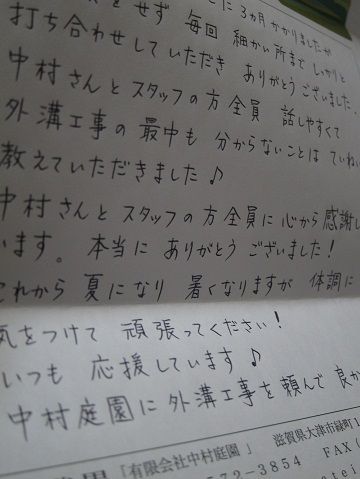 をせず 毎回 細かい所まで しっかりと
打ち合わせしていただき ありがとうございました。
中村さんと スタッフの方 全員 話しやすくて
外溝工事の 最中も 分からないことは ていねい
教えていただきました♪
中村さんと スタッフの方 全員に 心から 感謝し
います。 本当に ありがとう ございました!
これから 夏になり 暑くなりますが 体調に
気をつけて 頑張ってください!
いつも 応援しています♪
中村庭園に 外溝工事を 頼んで 良か
「有限会社中村庭園」 滋賀県大津市緑町1
572-3854 FAX(